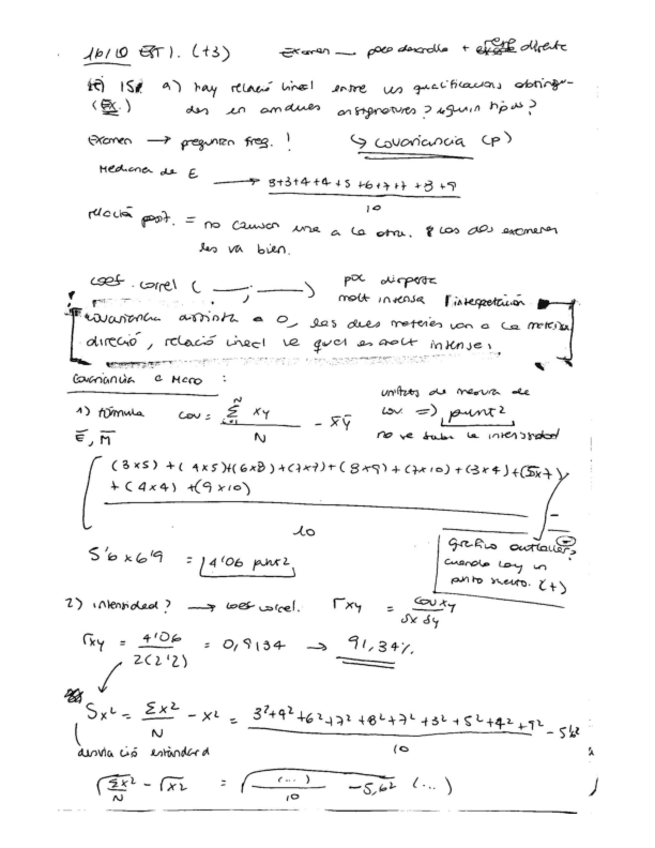 16/10 EST). (T3) Examen — poco desarrollo + directe
15. a) hay relació lineal entre les qualificacions obtingu-
(EX.) des en amdues assignatures? seguin tipus?
Examen → preguntan freq.! ↳ covariancia (p)
Mediana de E → 3+3+4+4+5+6+7+7+8+9
10
relació posit. = no causar una a la otra. los dos examenes
les va bien.
coef. correl ( — ; — ) poc dispersa
molt intensa interpretación
covariancia distinta a 0, les dues materies van a la mateixa
direcció, relació lineal la qual es molt intensa.
Covariancia a Mano :
1) fórmula cov = Σ xy / N - x̄ȳ
Ē, M̄
unitats de mesura de
cov. => punt2
no se sabe la intensidad
(3x5) + (4x5)+(6x8)+(7x7)+(8x9)+(7x10)+(3x4)+(5x7)
+ (4x4) +(9x10)
10
-
5'6 x 6'9 = 4'06 punt2
grafico outlaiers
cuando hay un
punto suelto. (+)
2) intensidad? → coef correl. rxy = covxy / Sx Sy
rxy = 4'06 / 2(2'2) = 0,9134 → 91,34%
Sx2 = Σx2 / N - x2 = 32+42+62+72+82+72+32+52+42+92 / 10 - 5'62
desviació estàndard
√Σx2/N - √x2 = √(...)/10 - 5,62 (...)